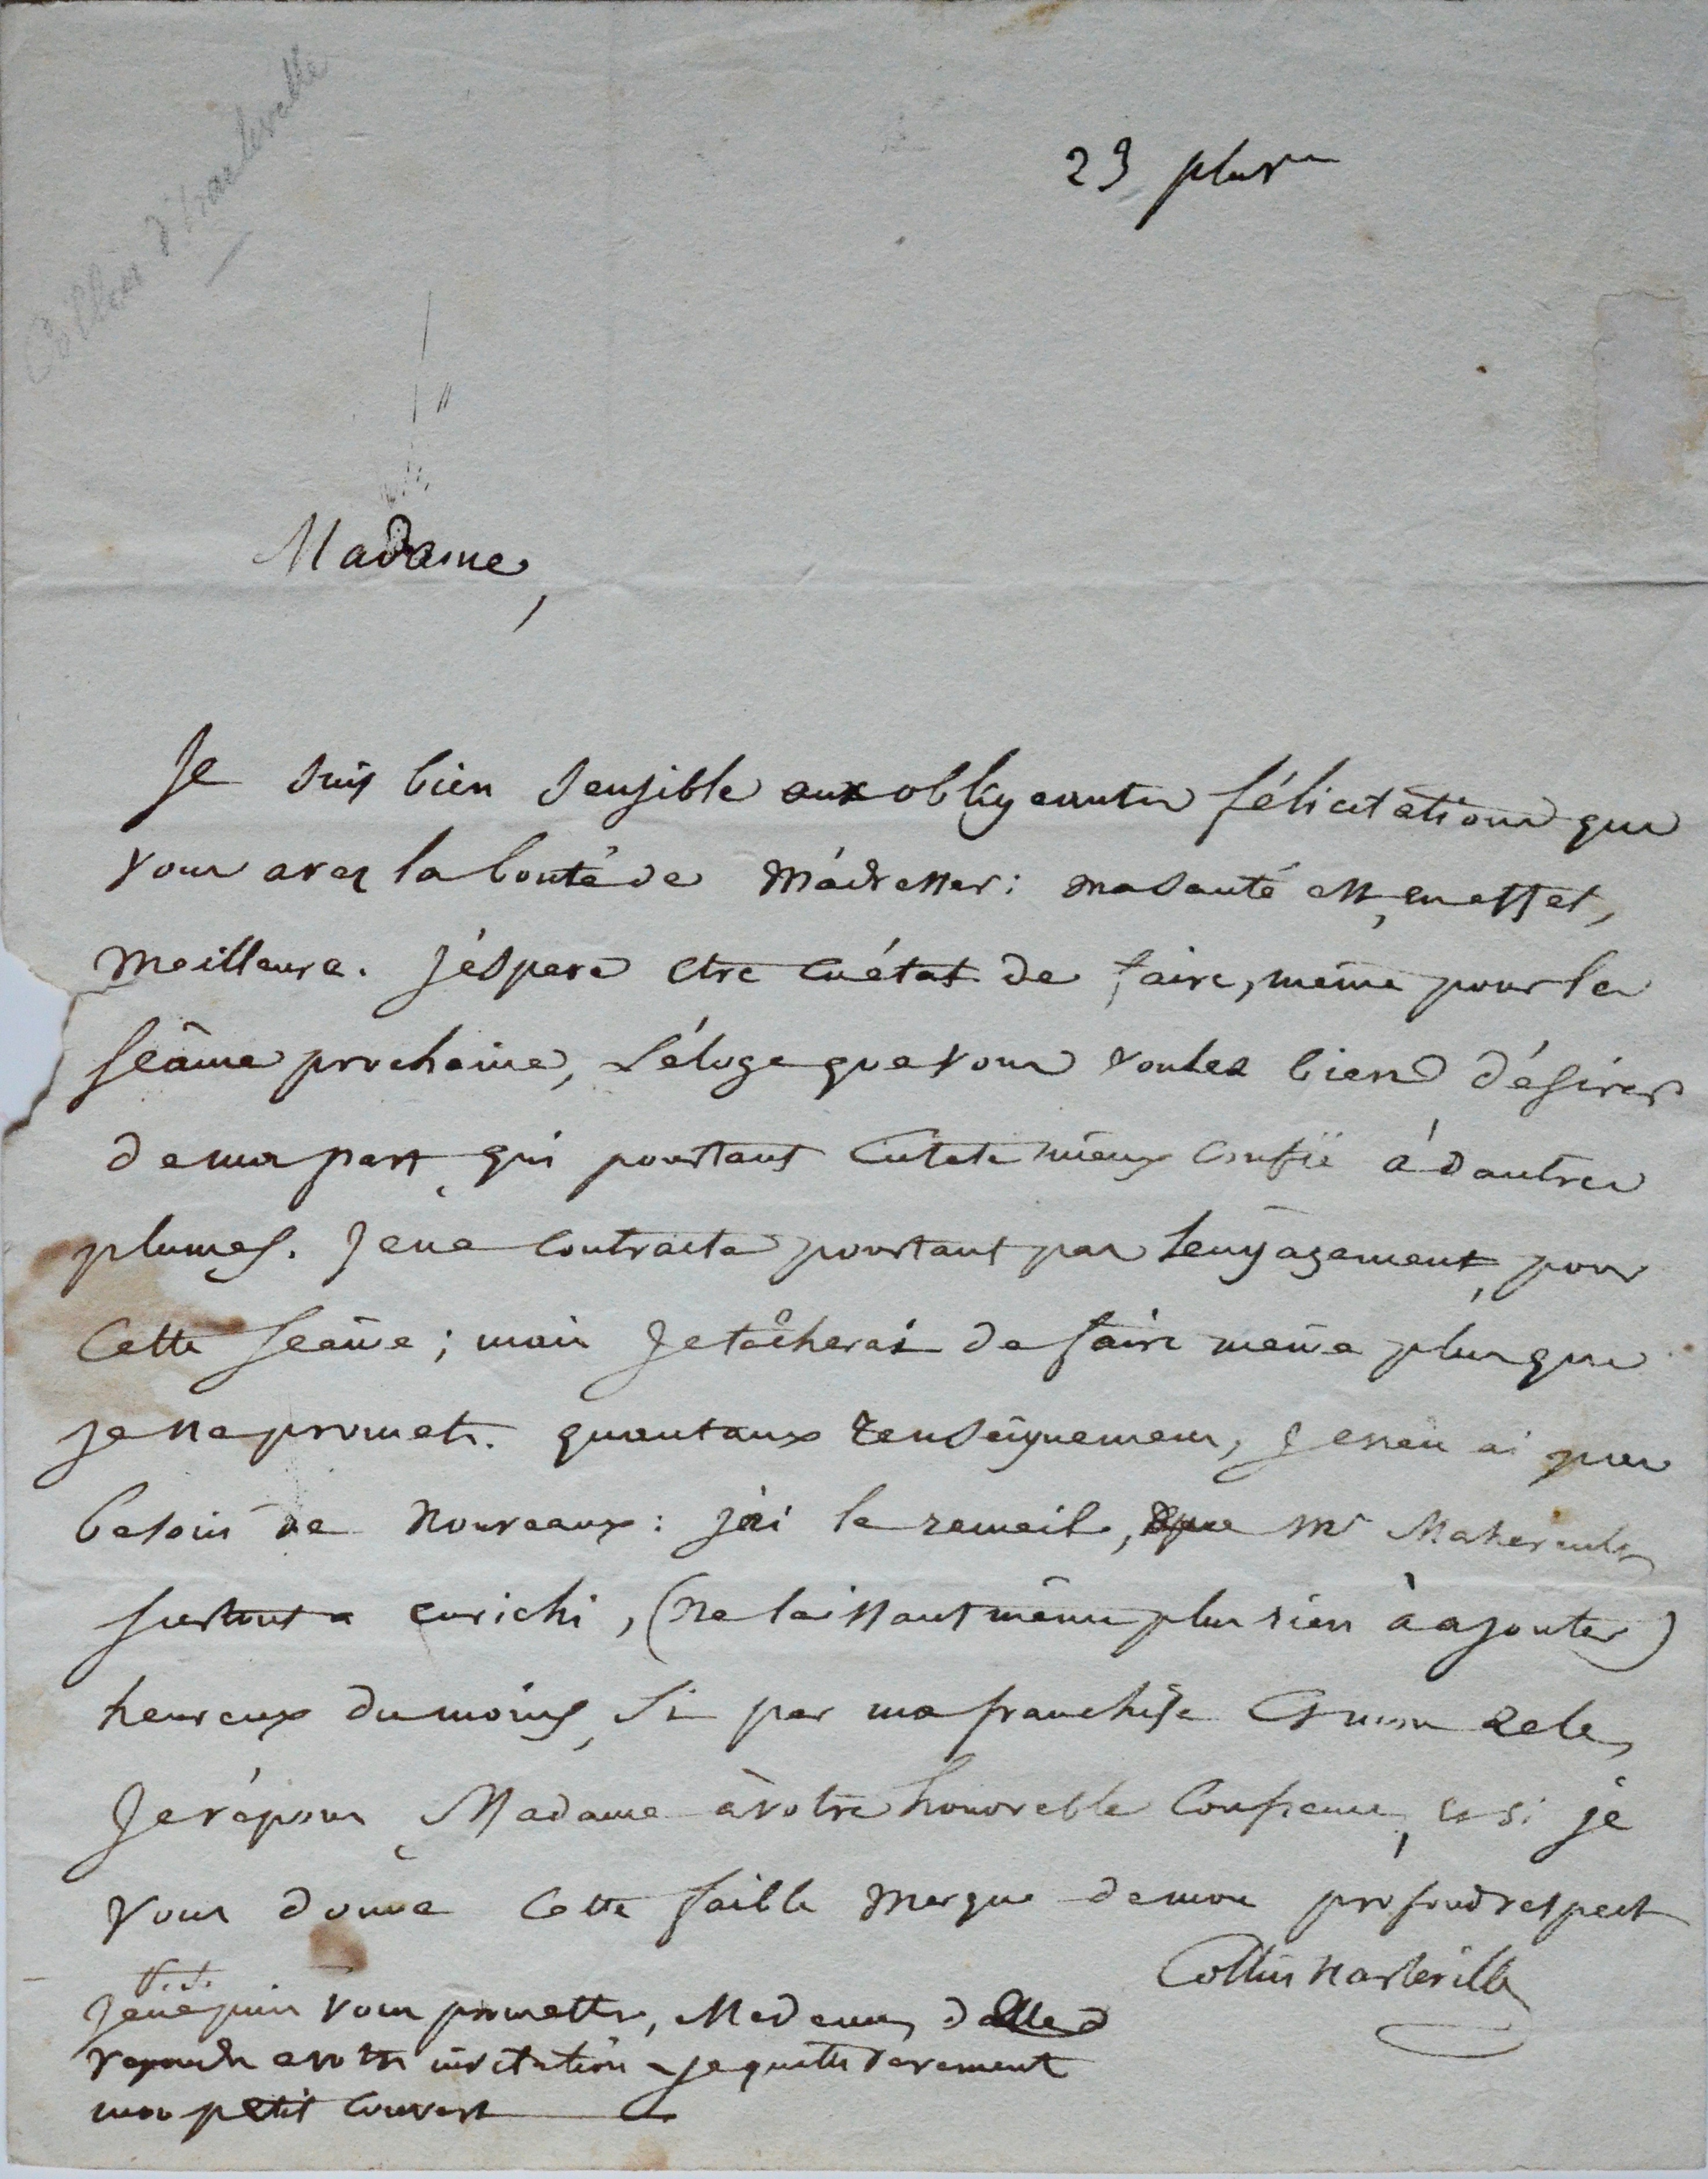 Collin d'harleville
23 pluv
Madame,
Je suis bien sensible aux obligeantes félicitations que
vous avez la bonté de m'adresser : ma santé est, en effet,
meilleure. j'éspere etre en état de faire, même pour la
séance prochaine, L'éloge que vous voulez bien désirer
de ma part, qui pourtant eut eté mieux confié à d'autres
plumes. Je ne contracte pourtant pas l'engagement, pour
cette séance ; mais je tâcherai de faire même plus que
je ne promets. quant aux renseignemens, je n'en ai pas
besoin de nouveaux : j'ai le recueil, que Mr Maherault
surtout a enrichi, (ne laissant même plus rien à ajouter)
heureux du moins, si par ma franchise et mon zele,
Je répons, Madame à votre honorable confiance, et si je
vous donne cette faible marque de mon profond respect
Collin harleville
Je ne puis vous promettre, Madame, d'aller
repondre à votre invitation je quitte rarement
mon petit couvert